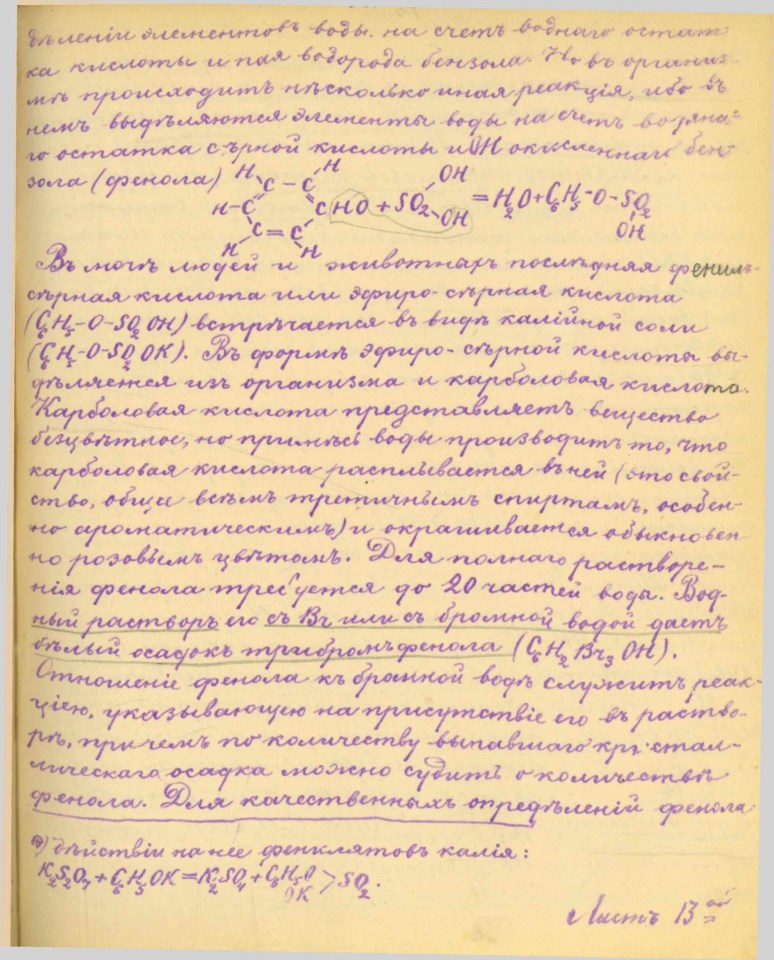 дѣленіи элементовъ воды на счетъ воднаго остат-
ка кислоты и пая водорода бензола. Но въ организ-
мѣ происходитъ нѣсколько иная реакція, ибо въ
немъ выдѣляются элементы воды на счетъ водяна-
го остатка сѣрной кислоты и OH окисленнаго бен-
зола (фенола)
H H
C – C OH
H–C C HO + SO2 OH = H2O + C6H5–O–SO2
C = C OH
H H
Въ мочѣ людей и животныхъ послѣдняя фенилъ-
сѣрная кислота или эфиро-сѣрная кислота
(C6H5–O–SO2OH) встрѣчается въ видѣ калійной соли
(C6H5–O–SO2OK). Въ формѣ эфиро-сѣрной кислоты вы-
дѣляется изъ организма и карболовая кислота.
Карболовая кислота представляетъ вещество
безцвѣтное, но примѣсь воды производитъ то, что
карболовая кислота расплывается въ ней (это свой-
ство, общее всѣмъ третичнымъ спиртамъ, особен-
но ароматическимъ) и окрашивается обыкновен-
но розовымъ цвѣтомъ. Для полнаго растворе-
нія фенола требуется до 20 частей воды. Вод-
ный растворъ его съ Br или съ бромной водой даетъ
бѣлый осадокъ трибромъфенола (C6H2Br3OH).
Отношеніе фенола къ бромной водѣ служитъ реак-
ціею, указывающею на присутствіе его въ раство-
рѣ, при чемъ по количеству выпавшаго кристал-
лическаго осадка можно судить о количествѣ
фенола. Для качественныхъ опредѣленій фенола
) дѣйствіи на нее фенилятовъ калія:
K2S2O7 + C6H5OK = K2SO4 + C6H5O
OK > SO2.
Листъ 13ый